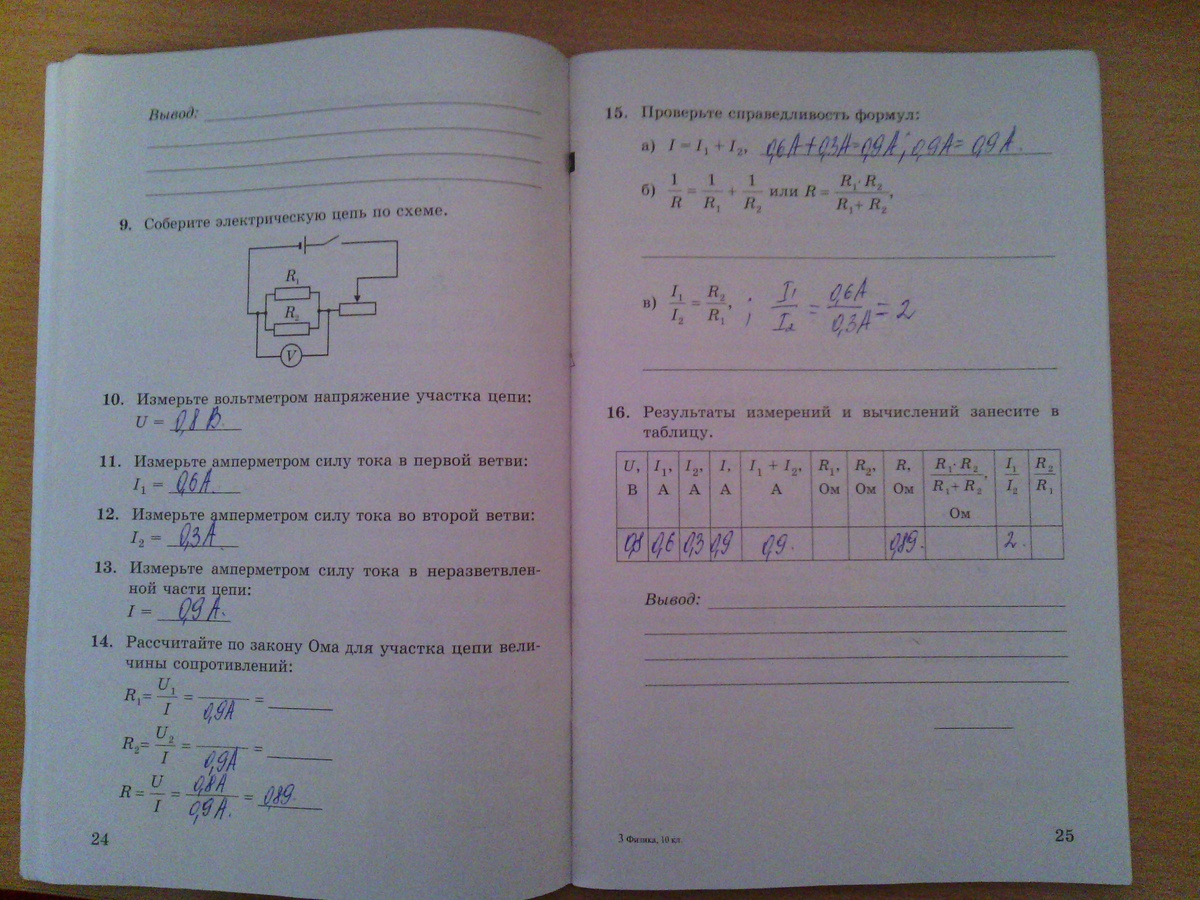 Вывод:
9. Соберите электрическую цепь по схеме.
R₁
R₂
V
10. Измерьте вольтметром напряжение участка цепи:
U = 0,8 В.
11. Измерьте амперметром силу тока в первой ветви:
I₁ = 0,6А.
12. Измерьте амперметром силу тока во второй ветви:
I₂ = 0,3А
13. Измерьте амперметром силу тока в неразветвлен-
ной части цепи:
I = 0,9А.
14. Рассчитайте по закону Ома для участка цепи вели-
чины сопротивлений:
R₁ = U₁/I = /0,9А = 
R₂ = U₂/I = /0,9А = 
R = U/I = 0,8А/0,9А. = 0,89.
24
15. Проверьте справедливость формул:
а) I = I₁ + I₂, 0,6А+0,3А=0,9А; 0,9А = 0,9А.
б) 1/R = 1/R₁ + 1/R₂ или R = R₁·R₂/R₁+R₂,
в) I₁/I₂ = R₂/R₁, ; I₁/I₂ = 0,6А/0,3А = 2
16. Результаты измерений и вычислений занесите в
таблицу.
U, В I₁, А I₂, А I, А I₁ + I₂, А R₁, Ом R₂, Ом R, Ом R₁·R₂/R₁+R₂, Ом I₁/I₂ R₂/R₁
0,8 0,6 0,3 0,9 0,9. 0,89. 2.
Вывод:
3 Физика, 10 кл.
25